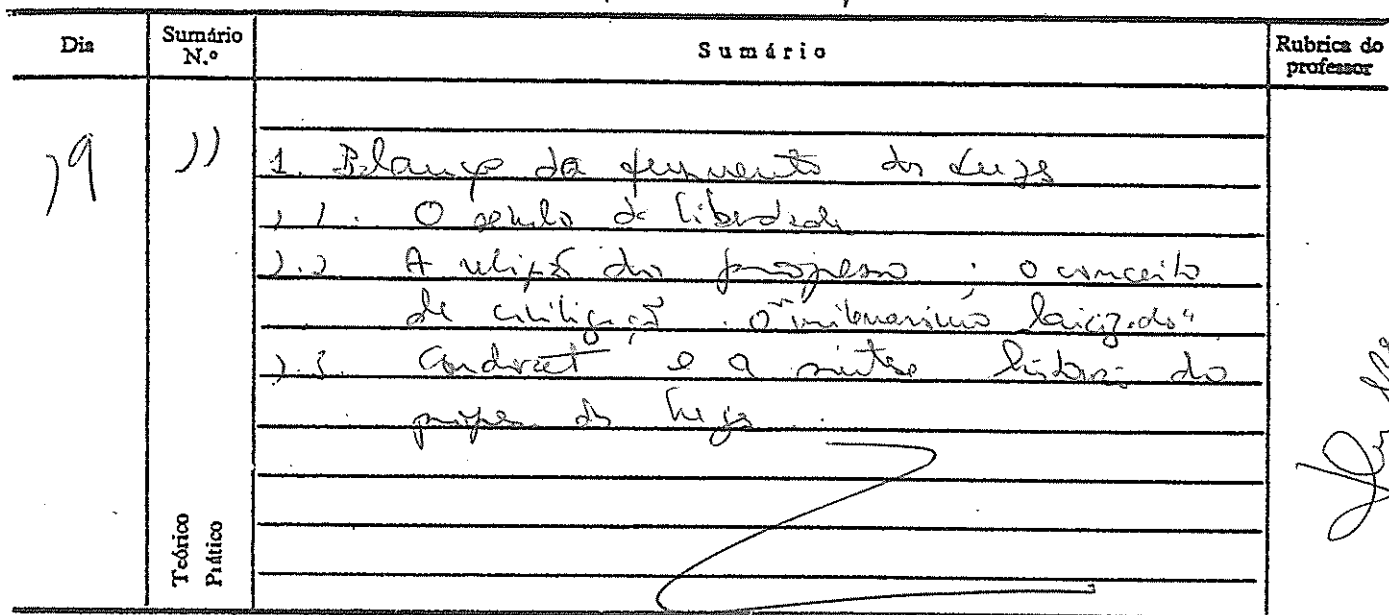 Dia
Sumário N.º
Sumário
Rubrica do professor
19
11
1. Balanço do pensamento das Luzes
1.1. O século da liberdade
1.2. A religião do progresso; o conceito
de civilização. O "milenarismo laicizado"
1.3. Condorcet e a síntese histórica do
progresso das Luzes.
Teórico
Prático